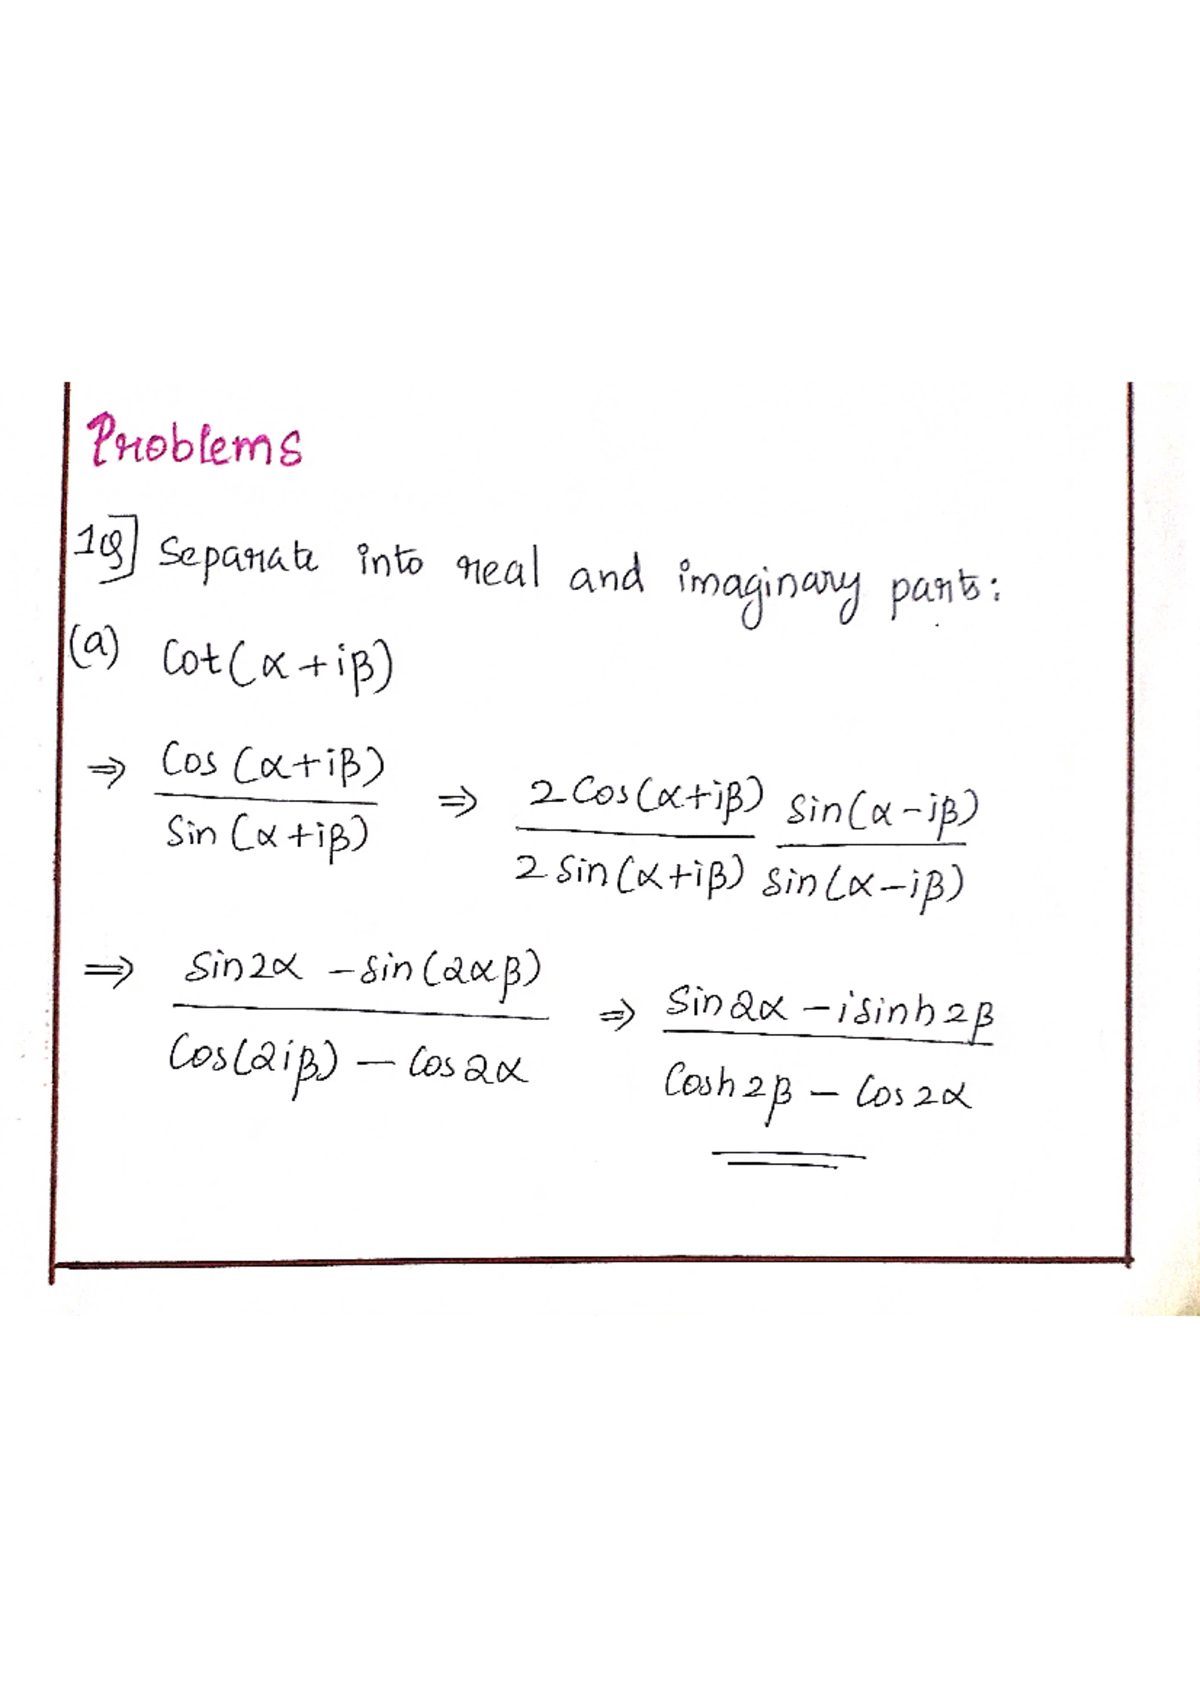 Problems
1Q] Separate into real and imaginary parts:
(a) Cot(α+iβ)
⇒ Cos(α+iβ) / Sin(α+iβ) ⇒ 2Cos(α+iβ) Sin(α-iβ) / 2Sin(α+iβ) Sin(α-iβ)
⇒ Sin2α - Sin(2αβ) / Cos(2iβ) - Cos2α ⇒ Sin2α - iSinh2β / Cosh2β - Cos2α